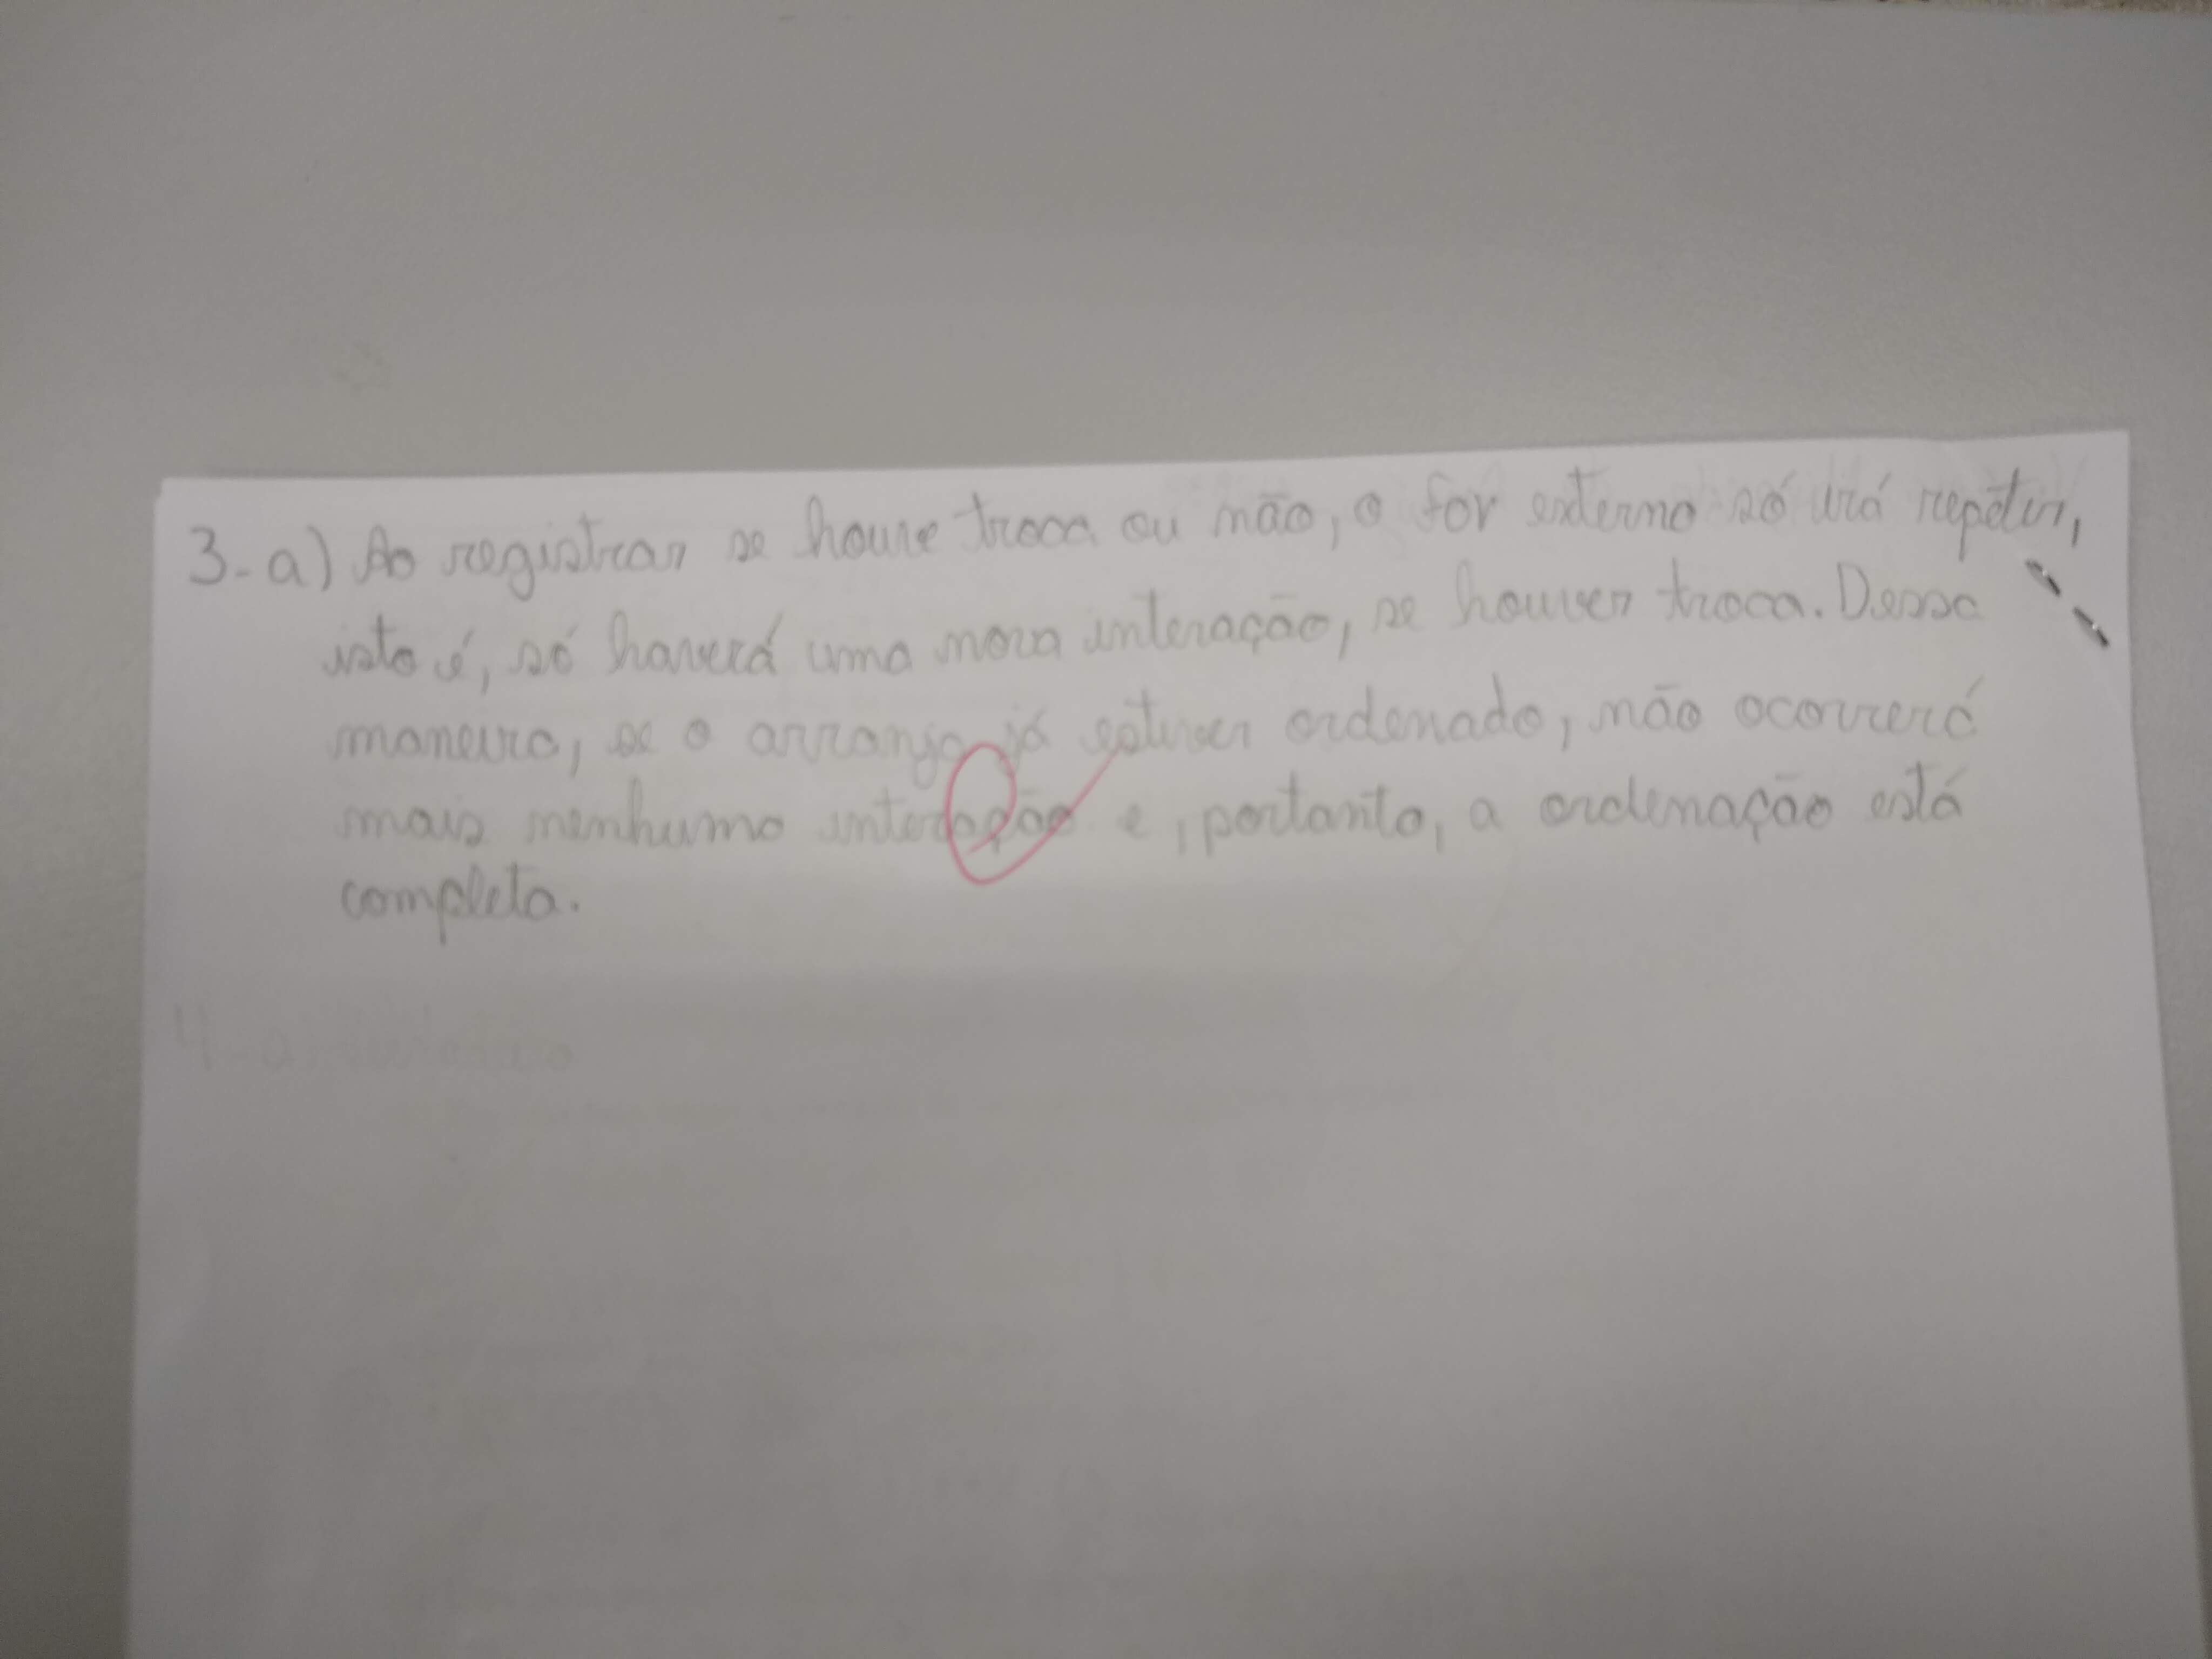 3-a) Ao registrar se houve troca ou não, o for externo só irá repetir,
isto é, só haverá uma nova interação, se houver troca. Dessa
maneira, se o arranjo já estiver ordenado, não ocorrerá
mais nenhuma interação e, portanto, a ordenação está
completa.
4-a)